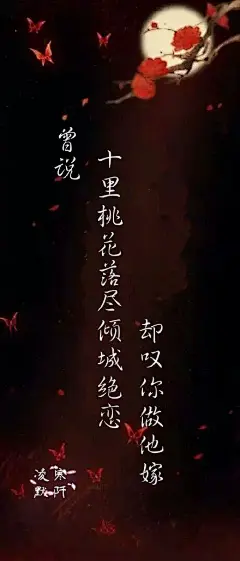 曾说
十里桃花落尽倾城绝恋
却叹你做他嫁
凌默